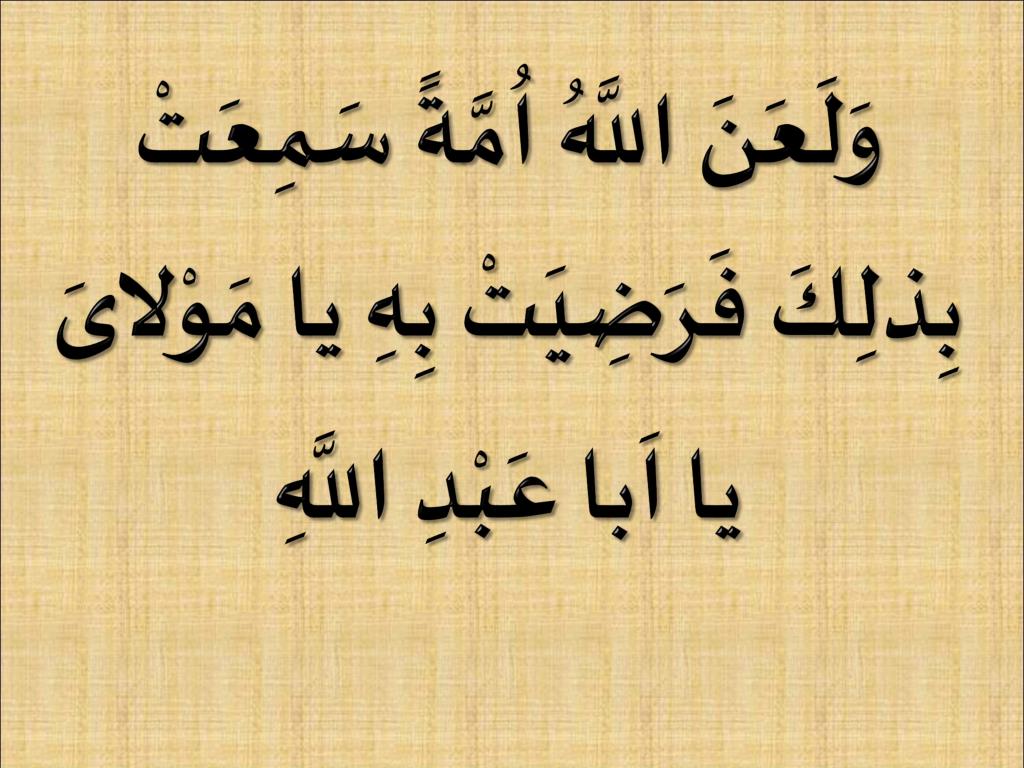 وَلَعَنَ اللَّهُ اُمَّةً سَمِعَتْ
بِذلِكَ فَرَضِيَتْ بِهِ يا مَوْلاىَ
يا اَبا عَبْدِ اللَّهِ